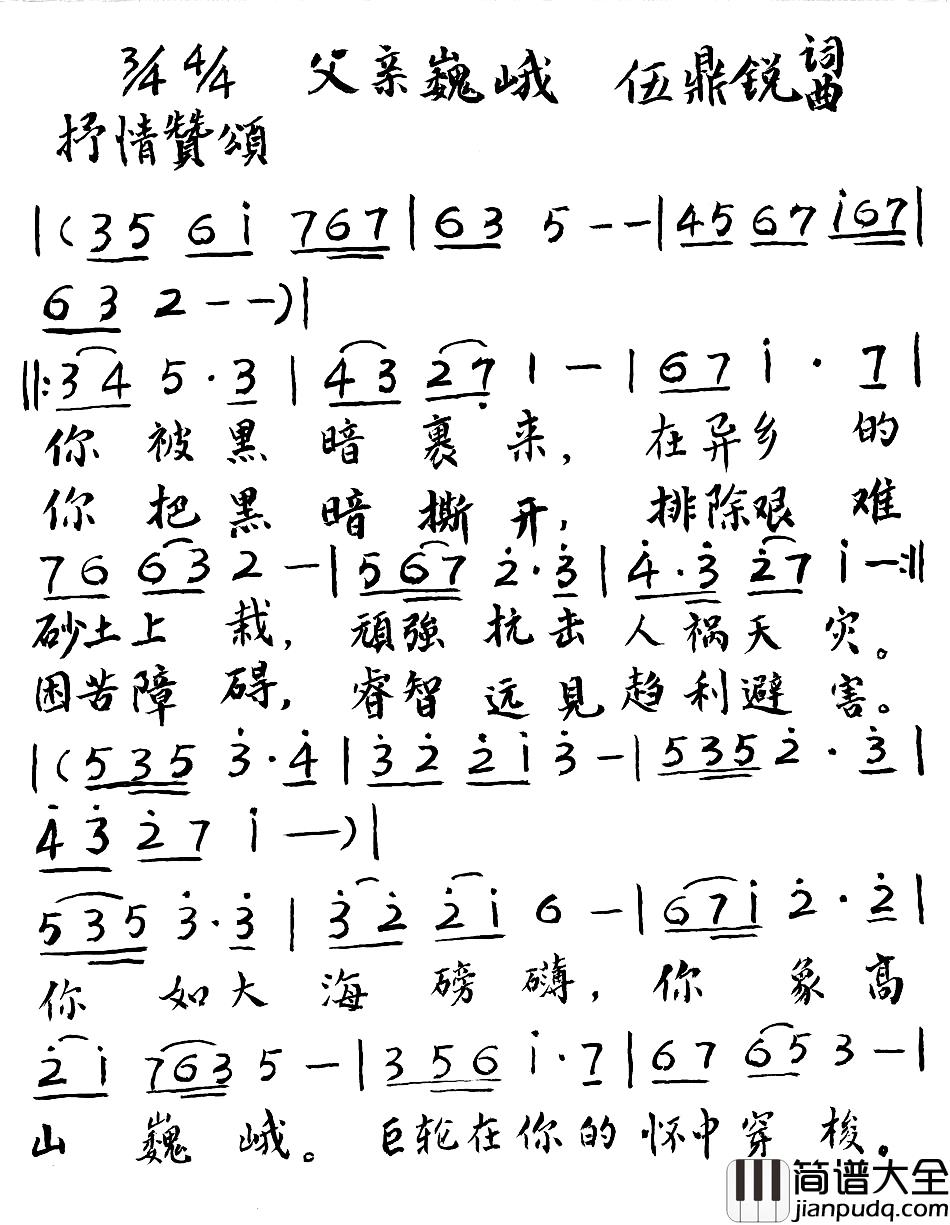 3/4 4/4 父亲巍峨 伍鼎銳 词曲
抒情贊頌
|(35 6i 767|63 5--|45 67 i67|
63 2--)|
||:34 5·3|43 27 1-|67 i·7|
你被黑暗裹来,在异乡的
你把黑暗撕开,排除艰难
76 63 2-|567 2·3|4·3 27 i-:||
砂土上栽,頑強抗击人祸天灾。
困苦障碍,睿智远見趋利避害。
|(535 3·4|32 2i 3-|535 2·3|
43 27 i-)|
535 3·3|32 2i 6-|67i 2·2|
你如大海磅礴,你象高
2i 763 5-|356 i·7|67 65 3-|
山巍峨。巨轮在你的怀中穿梭。
简谱大全
jianpudq.com